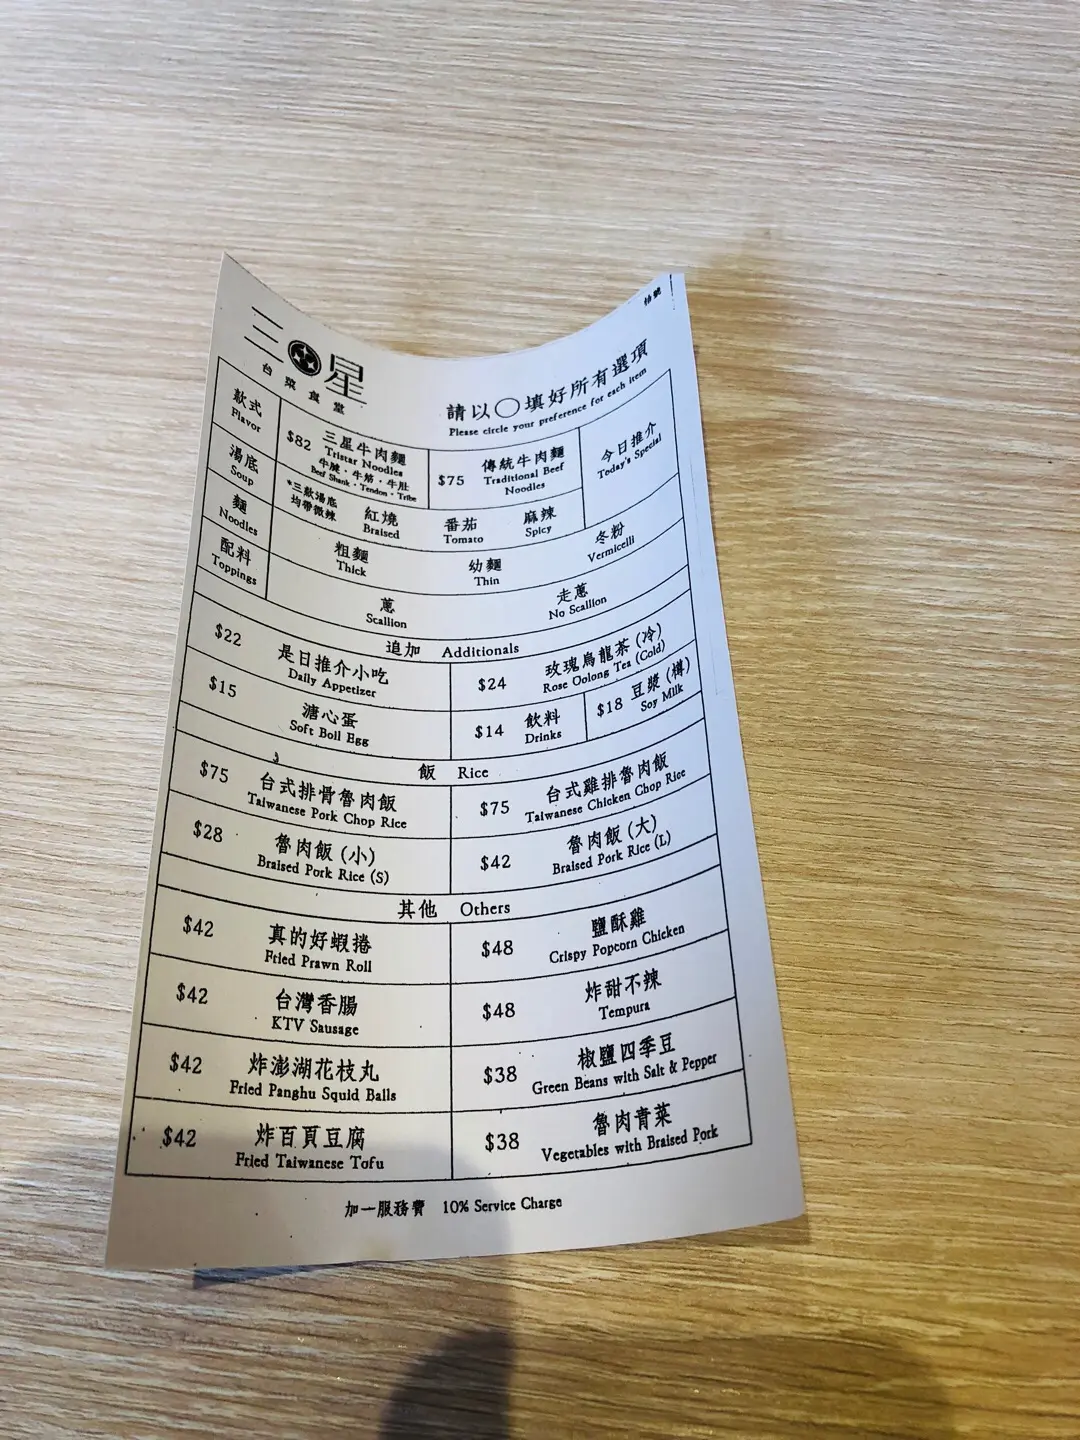 三星
台菜食堂
枱號
請以○填好所有選項
Please circle your preference for each item
款式
Flavor
$82 三星牛肉麵
Tristar Noodles
牛腱・牛筋・牛肚
Beef Shank・Tendon・Tribe
$75 傳統牛肉麵
Traditional Beef
Noodles
今日推介
Today's Special
湯底
Soup
*三款湯底
均帶微辣
紅燒
Braised
番茄
Tomato
麻辣
Spicy
麵
Noodles
粗麵
Thick
幼麵
Thin
冬粉
Vermicelli
配料
Toppings
蔥
Scallion
走蔥
No Scallion
追加 Additionals
$22 是日推介小吃
Daily Appetizer
$24 玫瑰烏龍茶 (冷)
Rose Oolong Tea (Cold)
$15 溏心蛋
Soft Boil Egg
$14 飲料
Drinks
$18 豆漿 (樽)
Soy Milk
飯 Rice
$75 台式排骨魯肉飯
Taiwanese Pork Chop Rice
$75 台式雞排魯肉飯
Taiwanese Chicken Chop Rice
$28 魯肉飯 (小)
Braised Pork Rice (S)
$42 魯肉飯 (大)
Braised Pork Rice (L)
其他 Others
$42 真的好蝦捲
Fried Prawn Roll
$48 鹽酥雞
Crispy Popcorn Chicken
$42 台灣香腸
KTV Sausage
$48 炸甜不辣
Tempura
$42 炸澎湖花枝丸
Fried Panghu Squid Balls
$38 椒鹽四季豆
Green Beans with Salt & Pepper
$42 炸百頁豆腐
Fried Taiwanese Tofu
$38 魯肉青菜
Vegetables with Braised Pork
加一服務費 10% Service Charge